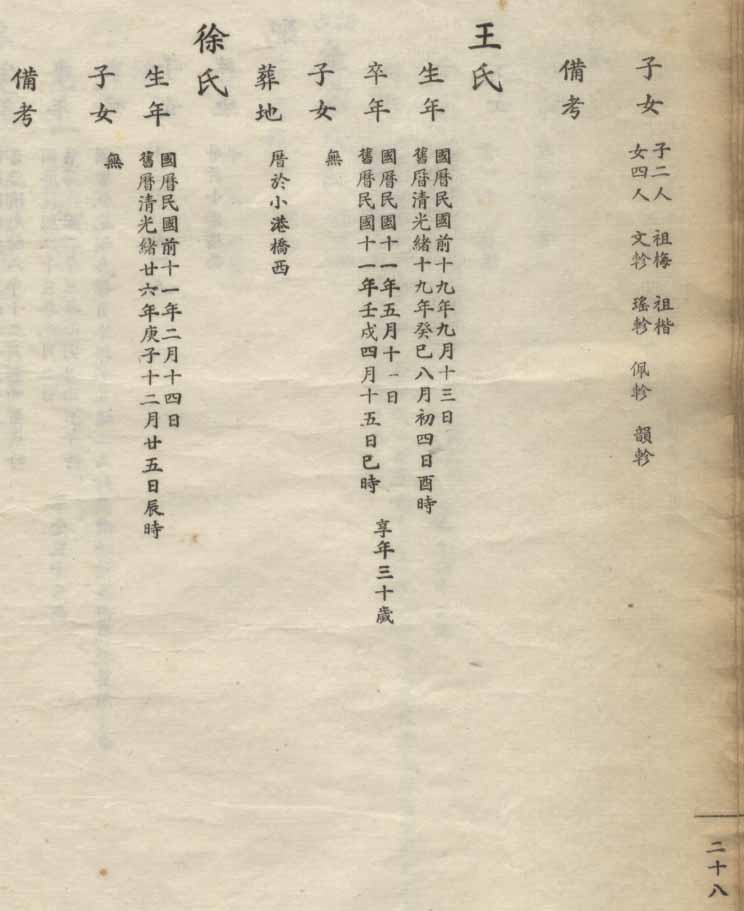 子女
子二人 祖梅 祖楷
女四人 文軫 瑤軫 佩軫 韻軫
備考
王氏
生年
國曆民國前十九年九月十三日
舊曆清光緒十九年癸巳八月初四日酉時
卒年
國曆民國十一年五月十一日
舊曆民國十一年壬戌四月十五日巳時
享年三十歲
子女
無
葬地
厝於小港橋西
徐氏
生年
國曆民國前十一年二月十四日
舊曆清光緒廿六年庚子十二月廿五日辰時
子女
無
備考
二十八